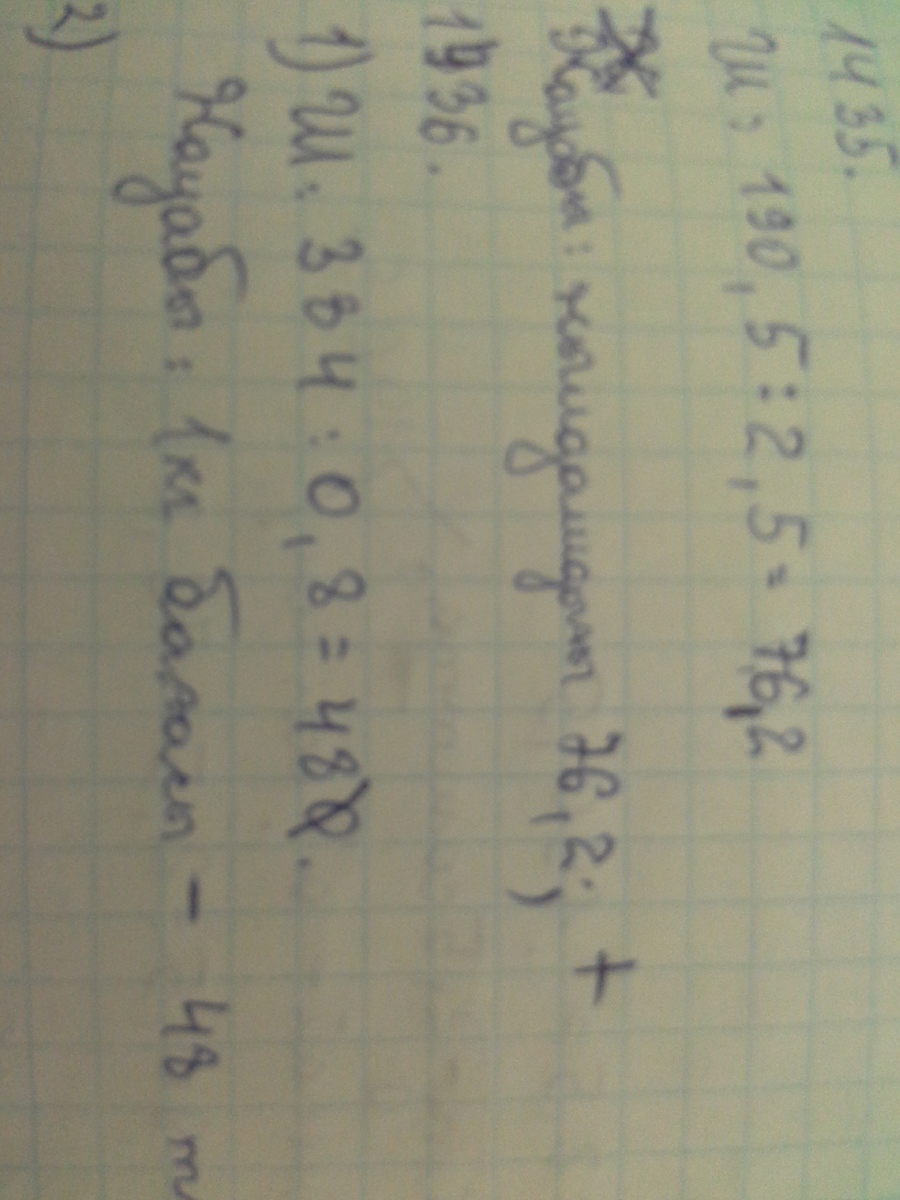 1435.
Ш: 190,5:2,5=76,2
Жауабы: жылдамдығы 76,2; +
1436.
1) Ш: 384:0,8=480.
Жауабы: 1 кг бағасы - 48 т
2)